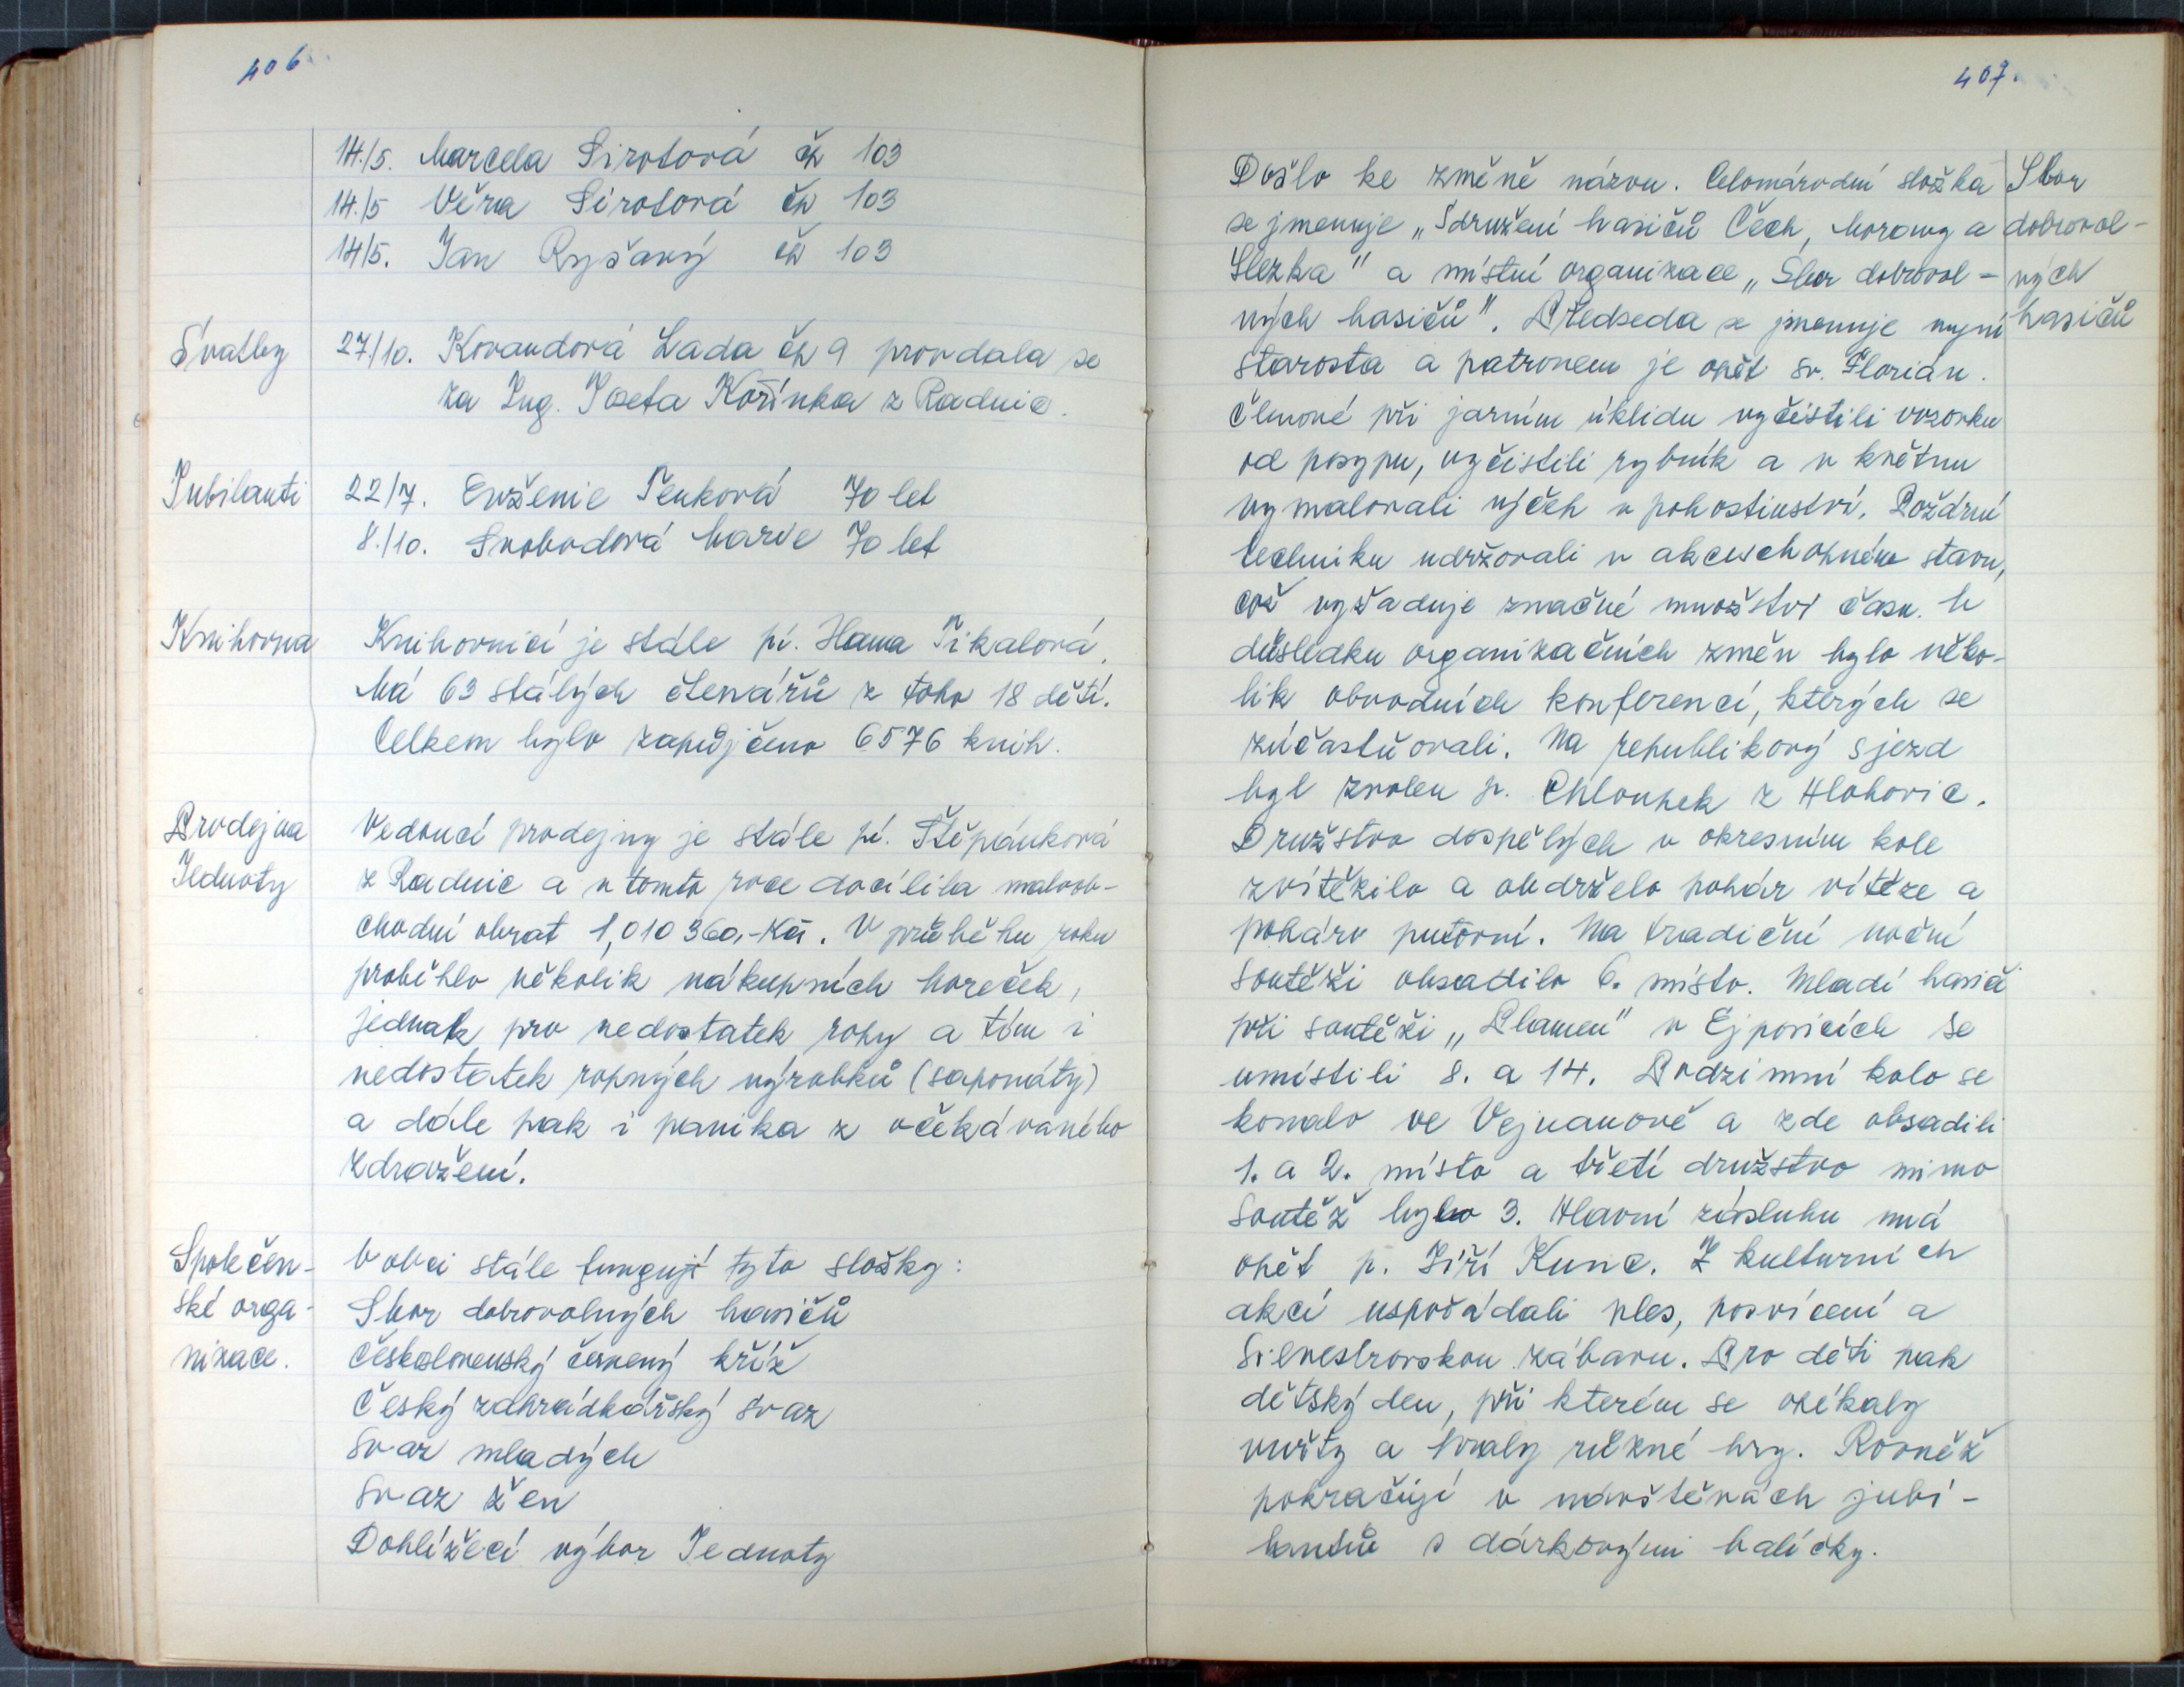 406
14./5. Marcela Sirotová čh 103
14./5 Věra Sirotová čh 103
14/5. Jan Ryšavý čh 103
Svatby 27/10. Kovandová Lada čh 9 provdala se
za Ing. Josefa Kořínka z Radnic.
Jubilanti 22/7. Evženie Penková 70 let
8./10. Svobodová Marie 70 let
Knihovna Knihovnicí je stále pí. Hana Tikalová.
Má 63 stálých čtenářů z toho 18 dětí.
Celkem bylo zapůjčeno 6576 knih.
Prodejna Vedoucí prodejny je stále pí. Štěpánková
Jednoty z Radnic a v tomto roce docílila maloob-
chodní obrat 1,010 360,-Kčs. V průběhu roku
proběhlo několik nákupních horeček,
jednak pro nedostatek ropy a tím i
nedostatek ropných výrobků (saponáty)
a dále pak i panika z očekávaného
zdražení.
Společen- V obci stále fungují tyto složky:
ské orga- Sbor dobrovolných hasičů
nizace. Československý červený kříž
Český zahrádkářský svaz
Svaz mladých
Svaz žen
Dohlížecí výbor Jednoty
407.
Došlo ke změně názvu. Celonárodní složka Sbor
se jmenuje „Sdružení hasičů Čech, Moravy a dobrovol-
Slezka" a místní organizace „Sbor dobrovol- ných
ných hasičů". Předseda se jmenuje nyní hasičů
starosta a patronem je opět sv. Florián.
Členové při jarním úklidu vyčistili vozovku
od posypu, vyčistili rybník a v květnu
vymalovali výčep v pohostinství. Požární
techniku udržovali v akceschopném stavu,
což vyžaduje značné množství času. V
důsledku organizačních změn bylo něko-
lik obvodních konferencí, kterých se
zúčastňovali. Na republikový sjezd
byl zvolen p. Chloupek z Hlohovic.
Družstvo dospělých v okresním kole
zvítězilo a obdrželo pohár vítěze a
pohárv putovní. Na tradiční noční
soutěži obsadilo 6. místo. Mladí hasiči
při soutěži „Plamen" v Ejpovicích se
umístili 8. a 14. Podzimní kolo se
konalo ve Vejvanově a zde obsadili
1. a 2. místo a třetí družstvo mimo
soutěž bylo 3. Hlavní zásluhu má
opět p. Jiří Kunc. Z kulturních
akcí uspořádali ples, posvícení a
Silvestrovskou zábavu. Pro děti pak
dětský den, při kterém se opékaly
vuřty a hrály různé hry. Rovněž
pokračují v návštěvách jubi-
lantů s dárkovými balíčky.